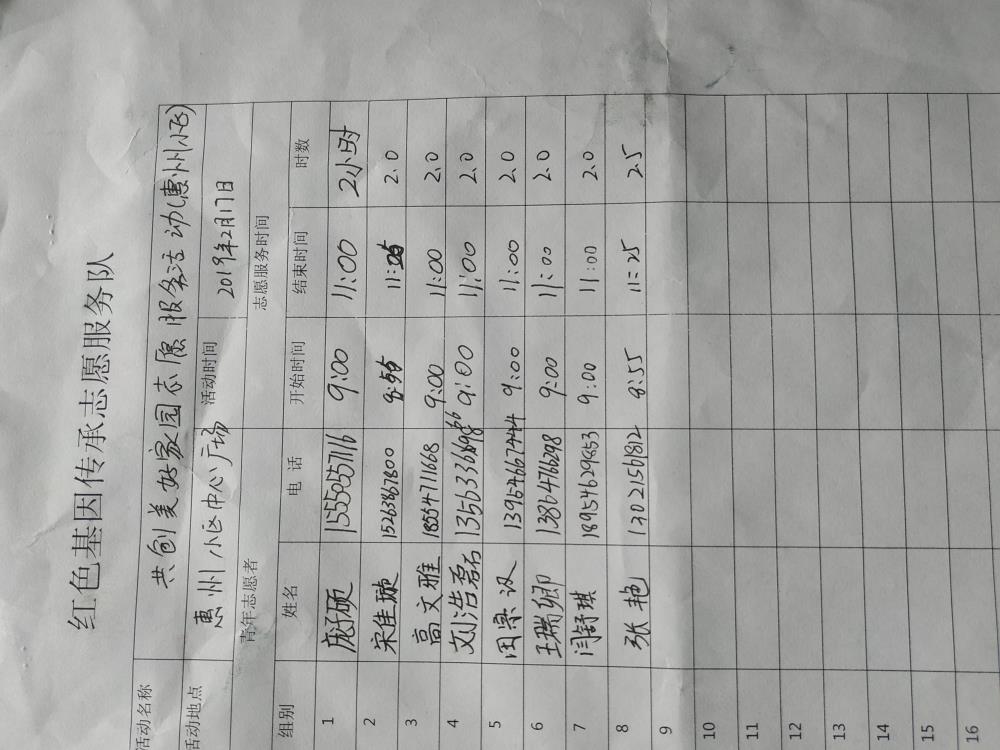 红色基因传承志愿服务队
活动名称 共创美好家园志愿服务活动(惠州小飞)
活动地点 惠州小区中心广场 活动时间 2019年2月17日
青年志愿者 志愿服务时间
组别 姓名 电话 开始时间 结束时间 时数
1 硕 15550557116 9:00 11:00 2小时
2 宋佳璇 15263867800 8:55 11:05 2.0
3 高文雅 18554711668 9:00 11:00 2.0
4 刘浩磊 9:00 11:00 2.0
5 13954667444 9:00 11:00 2.0
6 王瑞卿 13864766298 9:00 11:00 2.0
7 闫舒琪 18954629853 9:00 11:00 2.0
8 张艳 17021561812 8:55 11:25 2.5
9
10
11
12
13
14
15
16